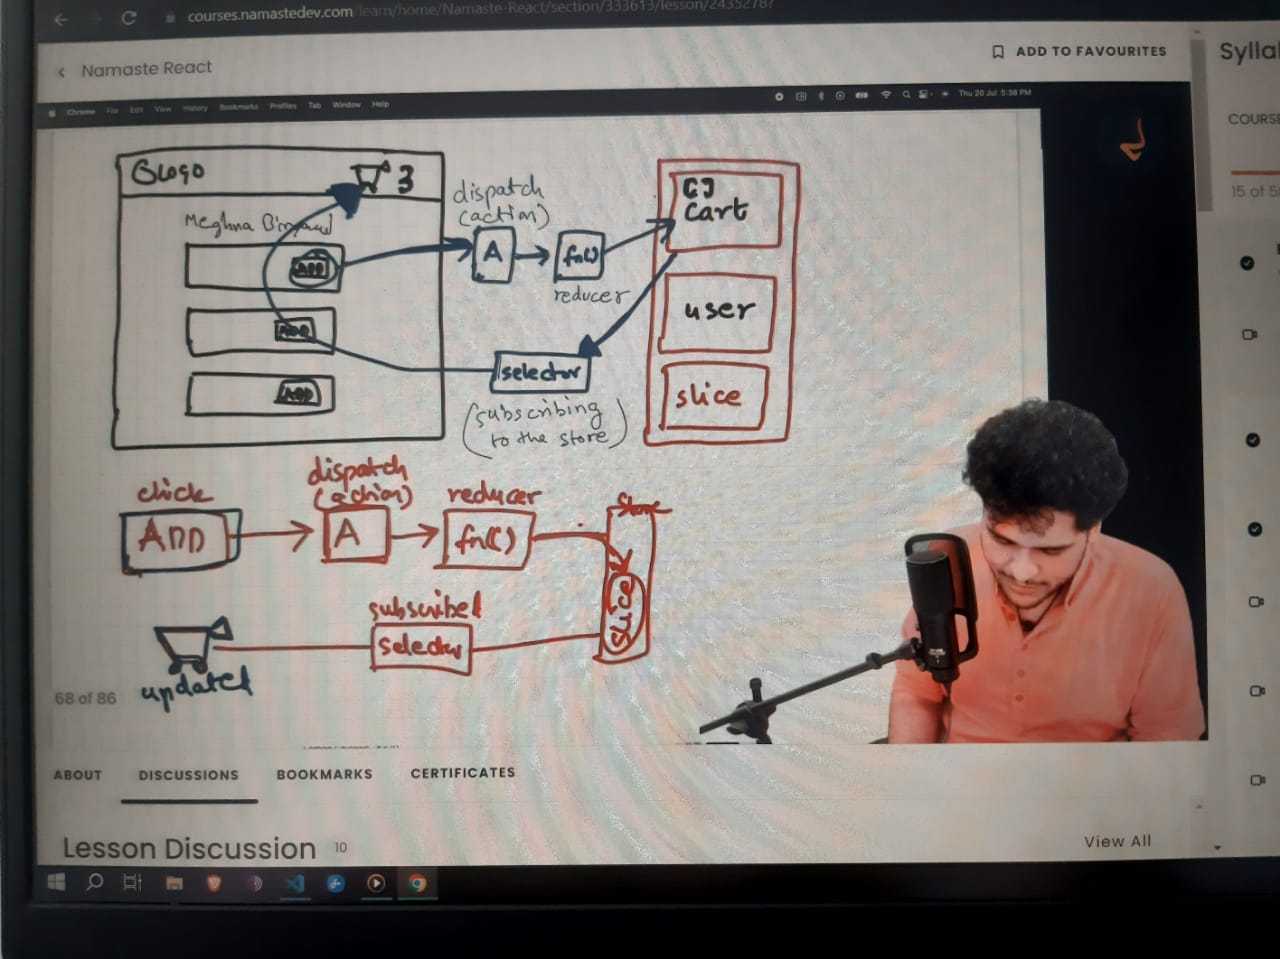 courses.namastedev.com/learn/home/Namaste-React/section/333613/lesson/2435278?
Namaste React
ADD TO FAVOURITES
Chrome File Edit View History Bookmarks Profiles Tab Window Help
Thu 20 Jul 5:38 PM
Logo
3
Meghna
ADD
ADD
ADD
dispatch
(action)
A
fn()
reducer
selector
(subscribing
to the store)
[]
Cart
user
slice
click
ADD
dispatch
(action)
A
reducer
fn()
Store
slice
subscribed
selector
updated
68 of 86
ABOUT
DISCUSSIONS
BOOKMARKS
CERTIFICATES
Lesson Discussion 10
View All
COURSE
15 of